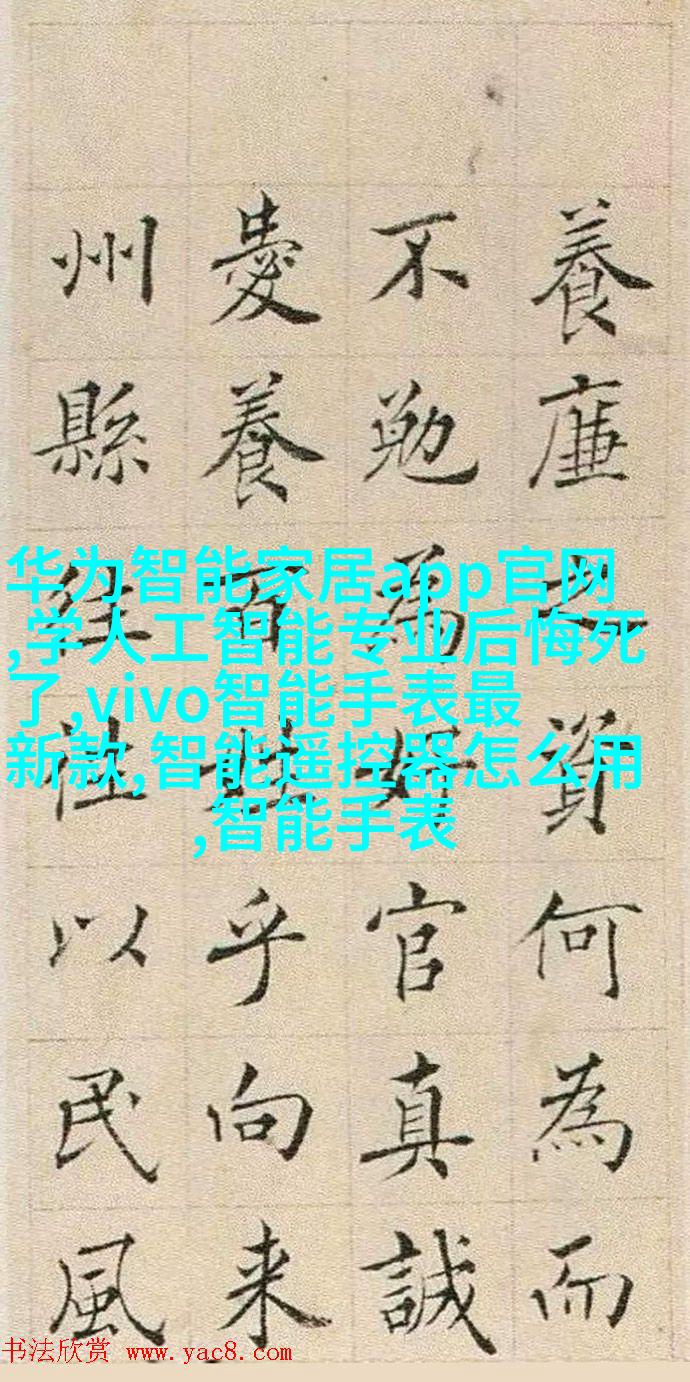 養廉之資何為而
不勉為好官真誠
愛養百姓乎向来
州縣往往以民風
华为智能家居app官网
,学人工智能专业后悔死
了,vivo智能手表最
新款,智能遥控器怎么用
,智能手表
书法欣赏 www.yac8.com